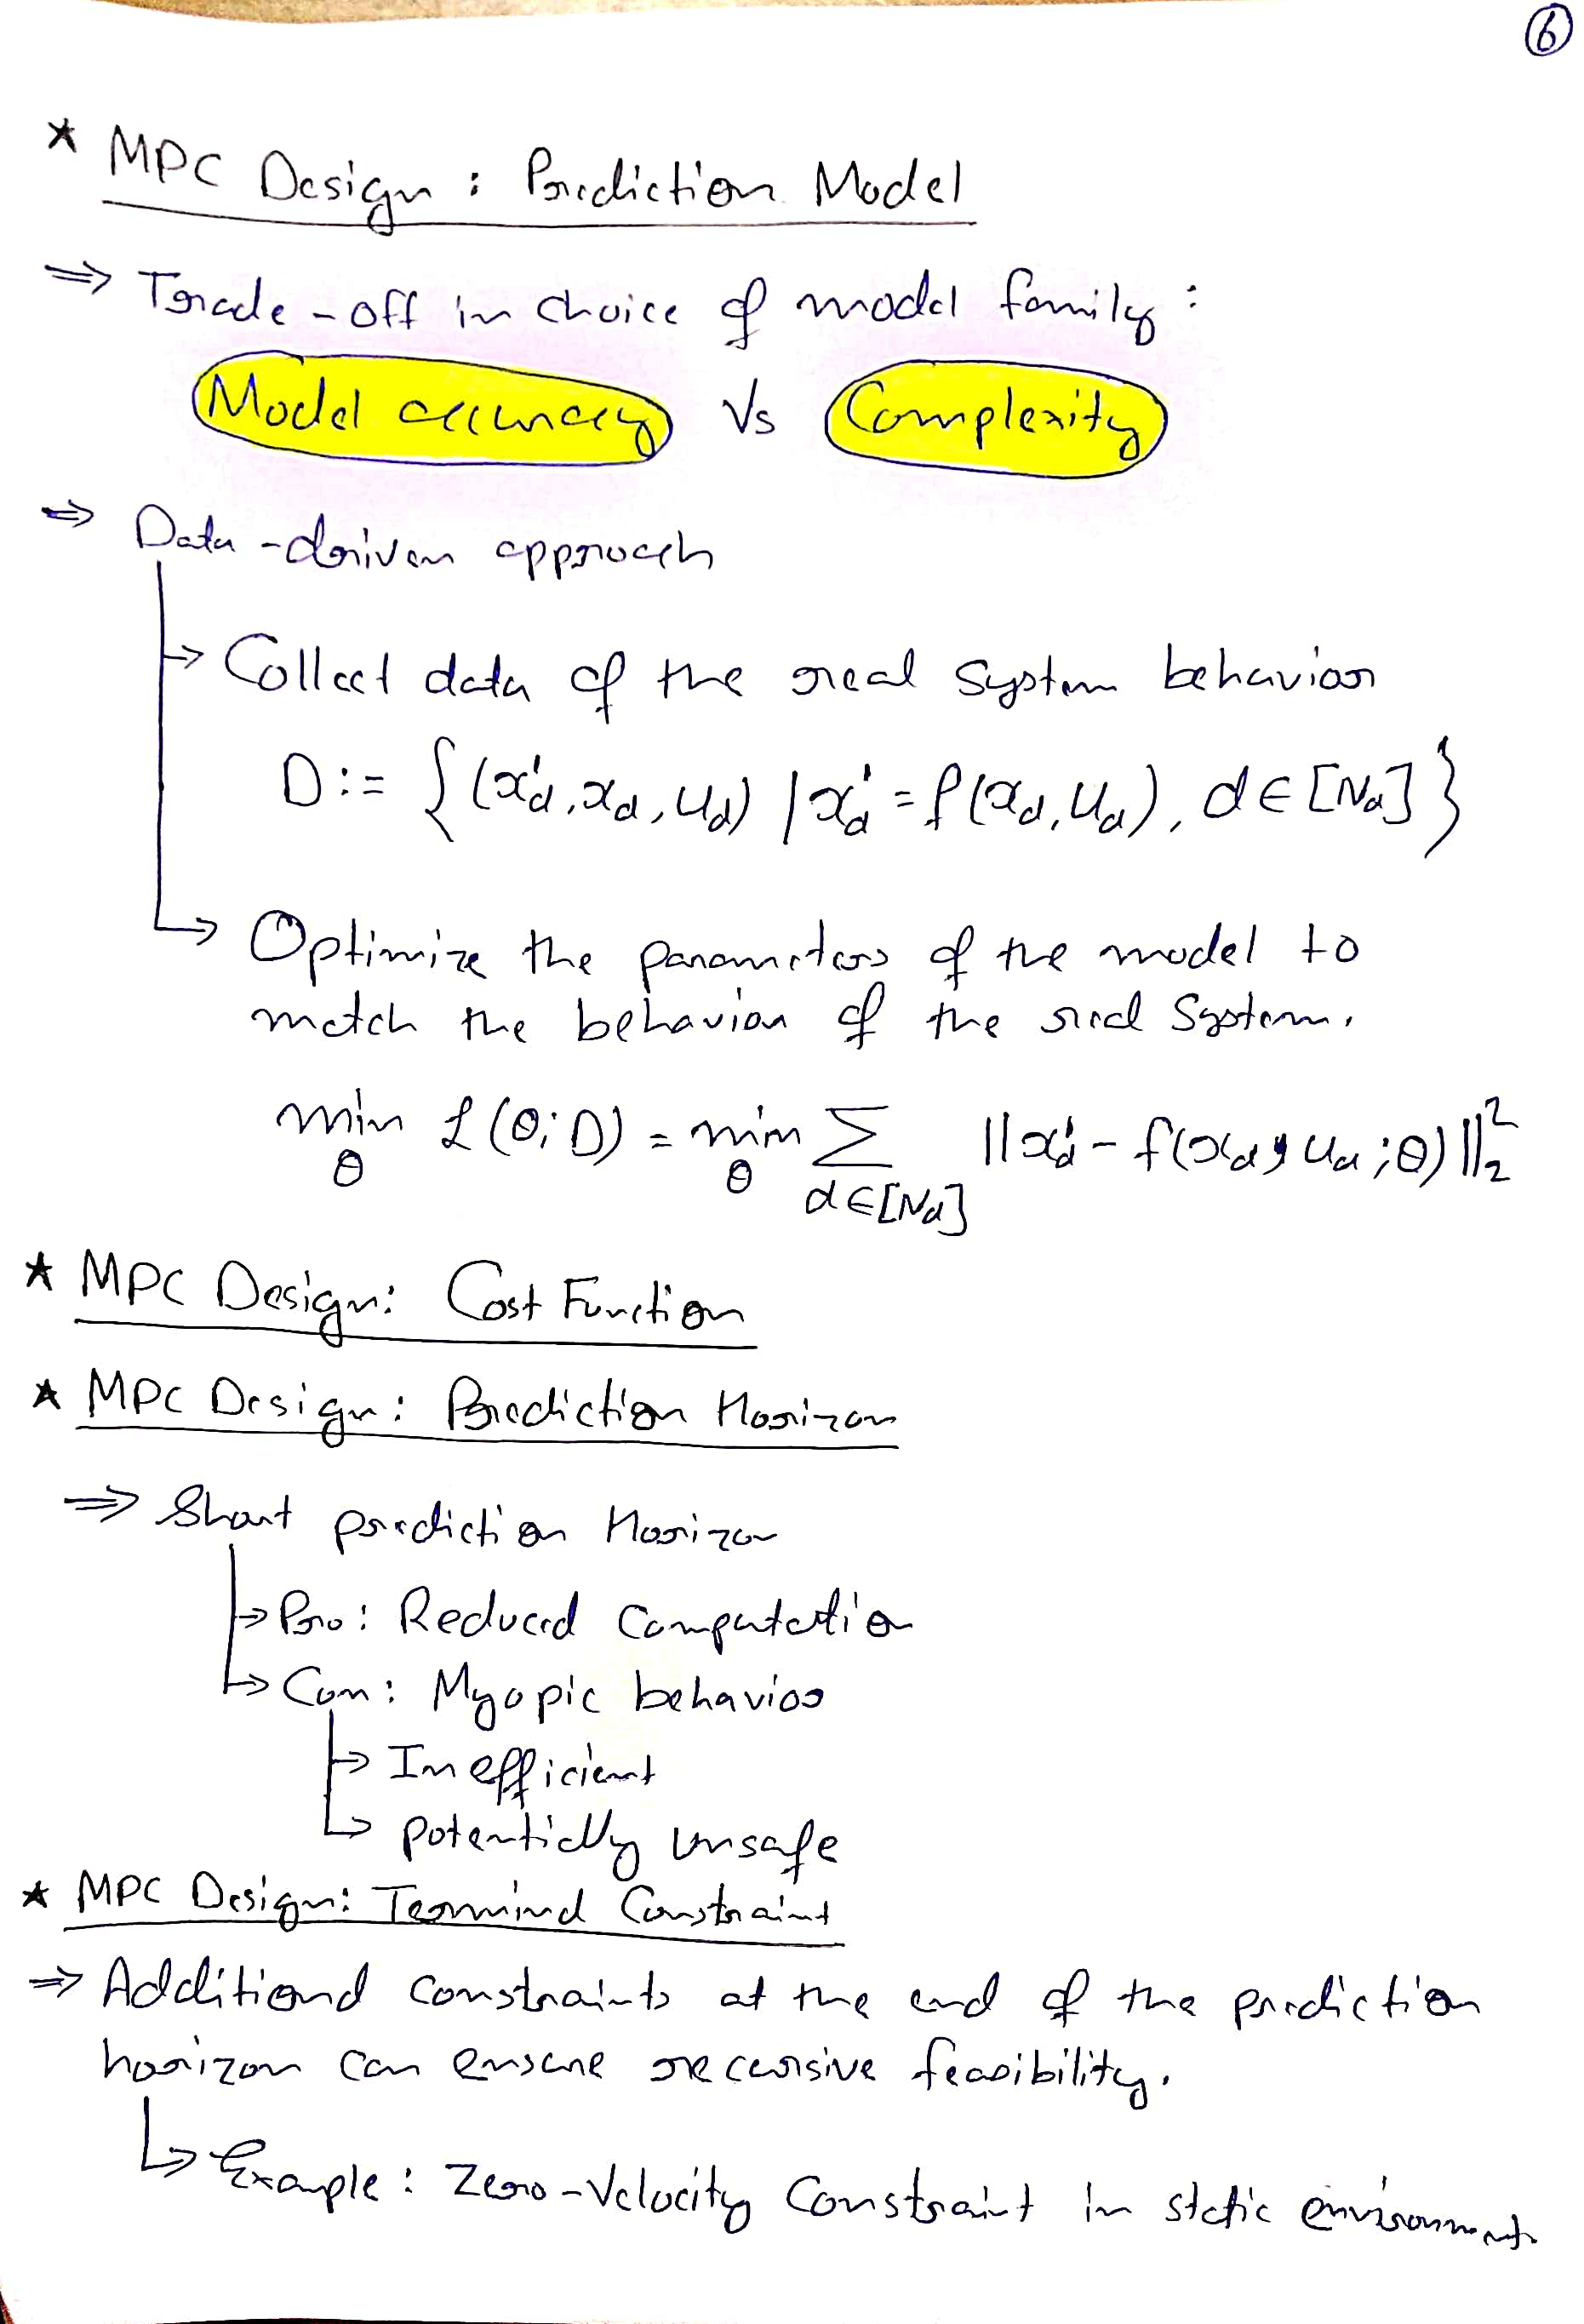 6
* MPC Design : Prediction Model
⇒ Trade-off in choice of model family :
Model accuracy Vs Complexity
⇒ Data-driven approach
↳ Collect data of the real system behavior
D := { (x'_d, x_d, u_d) | x'_d = f(x_d, u_d), d ∈ [N_d] }
↳ Optimize the parameters of the model to
match the behavior of the real System.
min_θ L(θ; D) = min_θ Σ_{d∈[N_d]} ||x'_d - f(x_d, u_d; θ)||²₂
* MPC Design: Cost Function
* MPC Design: Prediction Horizon
⇒ Short prediction Horizon
↳ Pro: Reduced Computation
↳ Con: Myopic behavior
↳ Inefficient
↳ potentially unsafe
* MPC Design: Terminal Constraint
⇒ Additional constraints at the end of the prediction
horizon can ensure recursive feasibility.
↳ Example: Zero-Velocity Constraint in static environment.